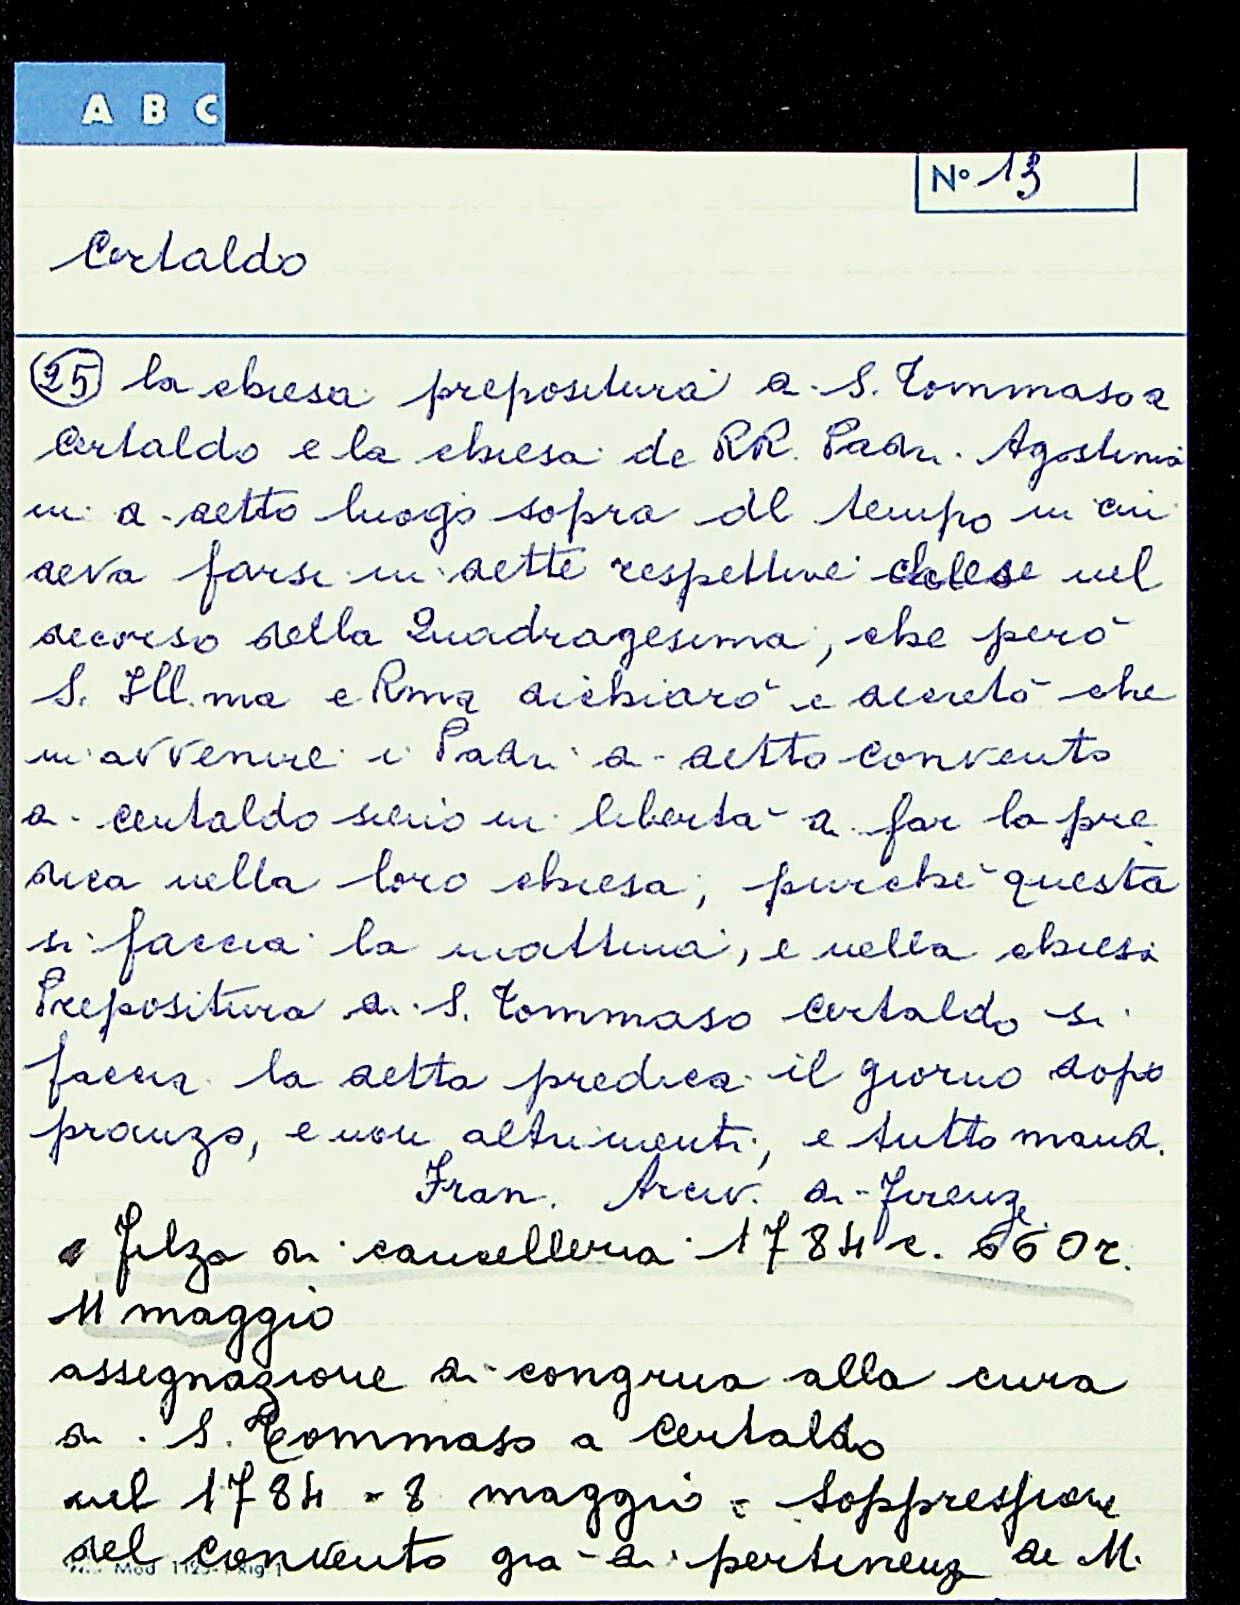 A B C
N° 13
Certaldo
25 la chiesa prepositura di S. Tommaso a
Certaldo e la chiesa de RR. Padri Agostinia
ni di detto luogo sopra al tempo in cui
deva farsi in dette respettive chiese nel
decorso della Quadragesima, che però
S. Ill.ma e Rma dichiarò e decretò che
in avvenire i Padri di detto convento
di certaldo sieno in libertà di far la pre
dica nella loro chiesa, purché questa
si faccia la mattina, e nella chiesa
Prepositura di S. Tommaso Certaldo si
faccia la detta predica il giorno dopo
pranzo, e non altrimenti, e tutto mand.
Fran. Arciv. di Firenze
Filza di cancelleria 1784 c. 660 r.
11 maggio
assegnazione di congrua alla cura
di S. Tommaso a Certaldo
nel 1784 = 8 maggio = soppressione
del convento già di pertinenz de M.
Mod 1125